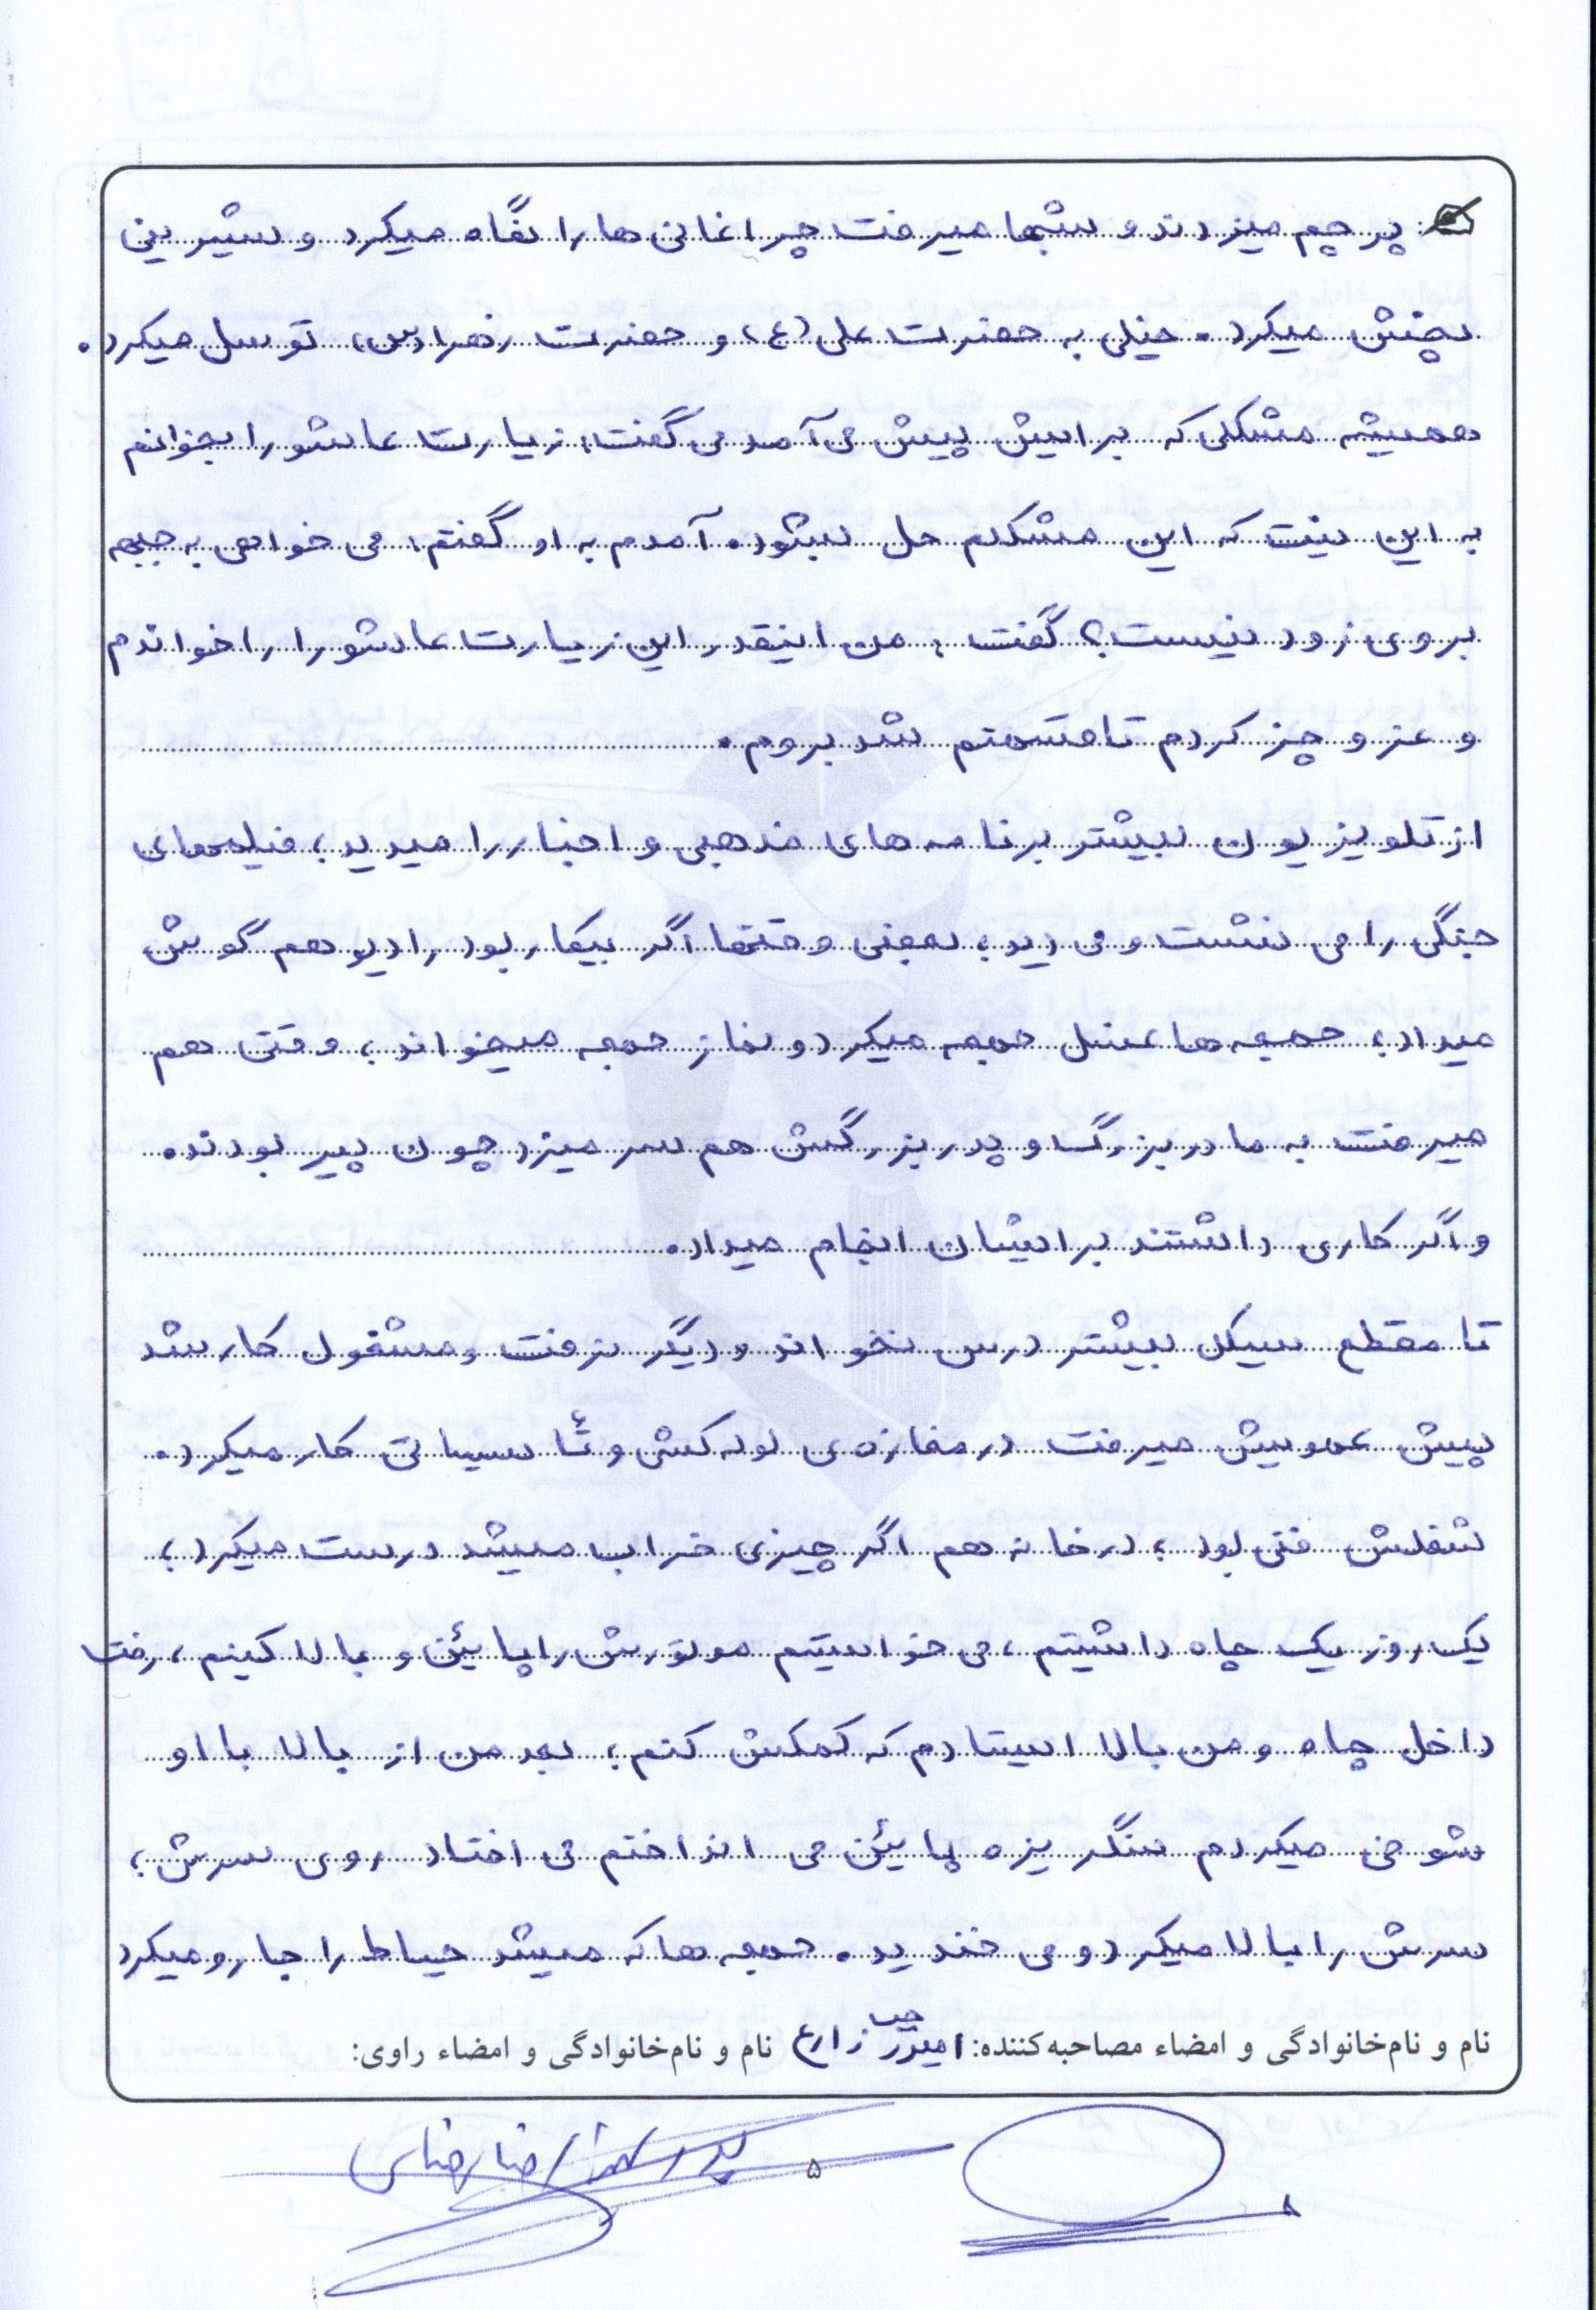 پرچم میزدند و شبها میرفت چراغانی ها را نگاه میکرد و شیرینی
پخش میکرد. خیلی به حضرت علی (ع) و حضرت زهرا (س) توسل میکرد.
همیشه مشکلی که برایش پیش می آمد می گفت: زیارت عاشورا بخوانم
به این نیت که این مشکلم حل بشود. آمدم به او گفتم: می خواهی به جبهه
بروی زود نیست؟ گفت: من اینقدر این زیارت عاشورا را خواندم
و عز و چز کردم تا قسمتم شد بروم.
از تلویزیون بیشتر برنامه های مذهبی و اخبار را میدید؛ فیلمهای
جنگی را می نشست و می دید؛ بعضی وقتها اگر بیکار بود رادیو هم گوش
میداد؛ جمعه ها غسل جمعه میکرد و نماز جمعه میخواند؛ وقتی هم
میرفت به مادربزرگ و پدربزرگش هم سر میزد چون پیر بودند.
و اگر کاری داشتند برایشان انجام میداد.
تا مقطع سیکل بیشتر درس نخواند و دیگر نرفت و مشغول کار شد
پیش عمویش میرفت در مغازه ی لوله کشی و تأسیساتی کار میکرد.
شغلش فنی بود؛ در خانه هم اگر چیزی خراب میشد درست میکرد؛
یک روز یک چاه داشتیم، می خواستیم موتورش را پائین و بالا کنیم، رفت
داخل چاه و من بالا ایستادم که کمکش کنم؛ بعد من از بالا با او
شوخی میکردم سنگریزه پائین می انداختم می افتاد روی سرش؛
سرش را بالا میکرد و می خندید. جمعه ها که میشد حیاط را جارو میکرد
نام و نام‌خانوادگی و امضاء مصاحبه‌کننده: زارع نام و نام‌خانوادگی و امضاء راوی:
۵